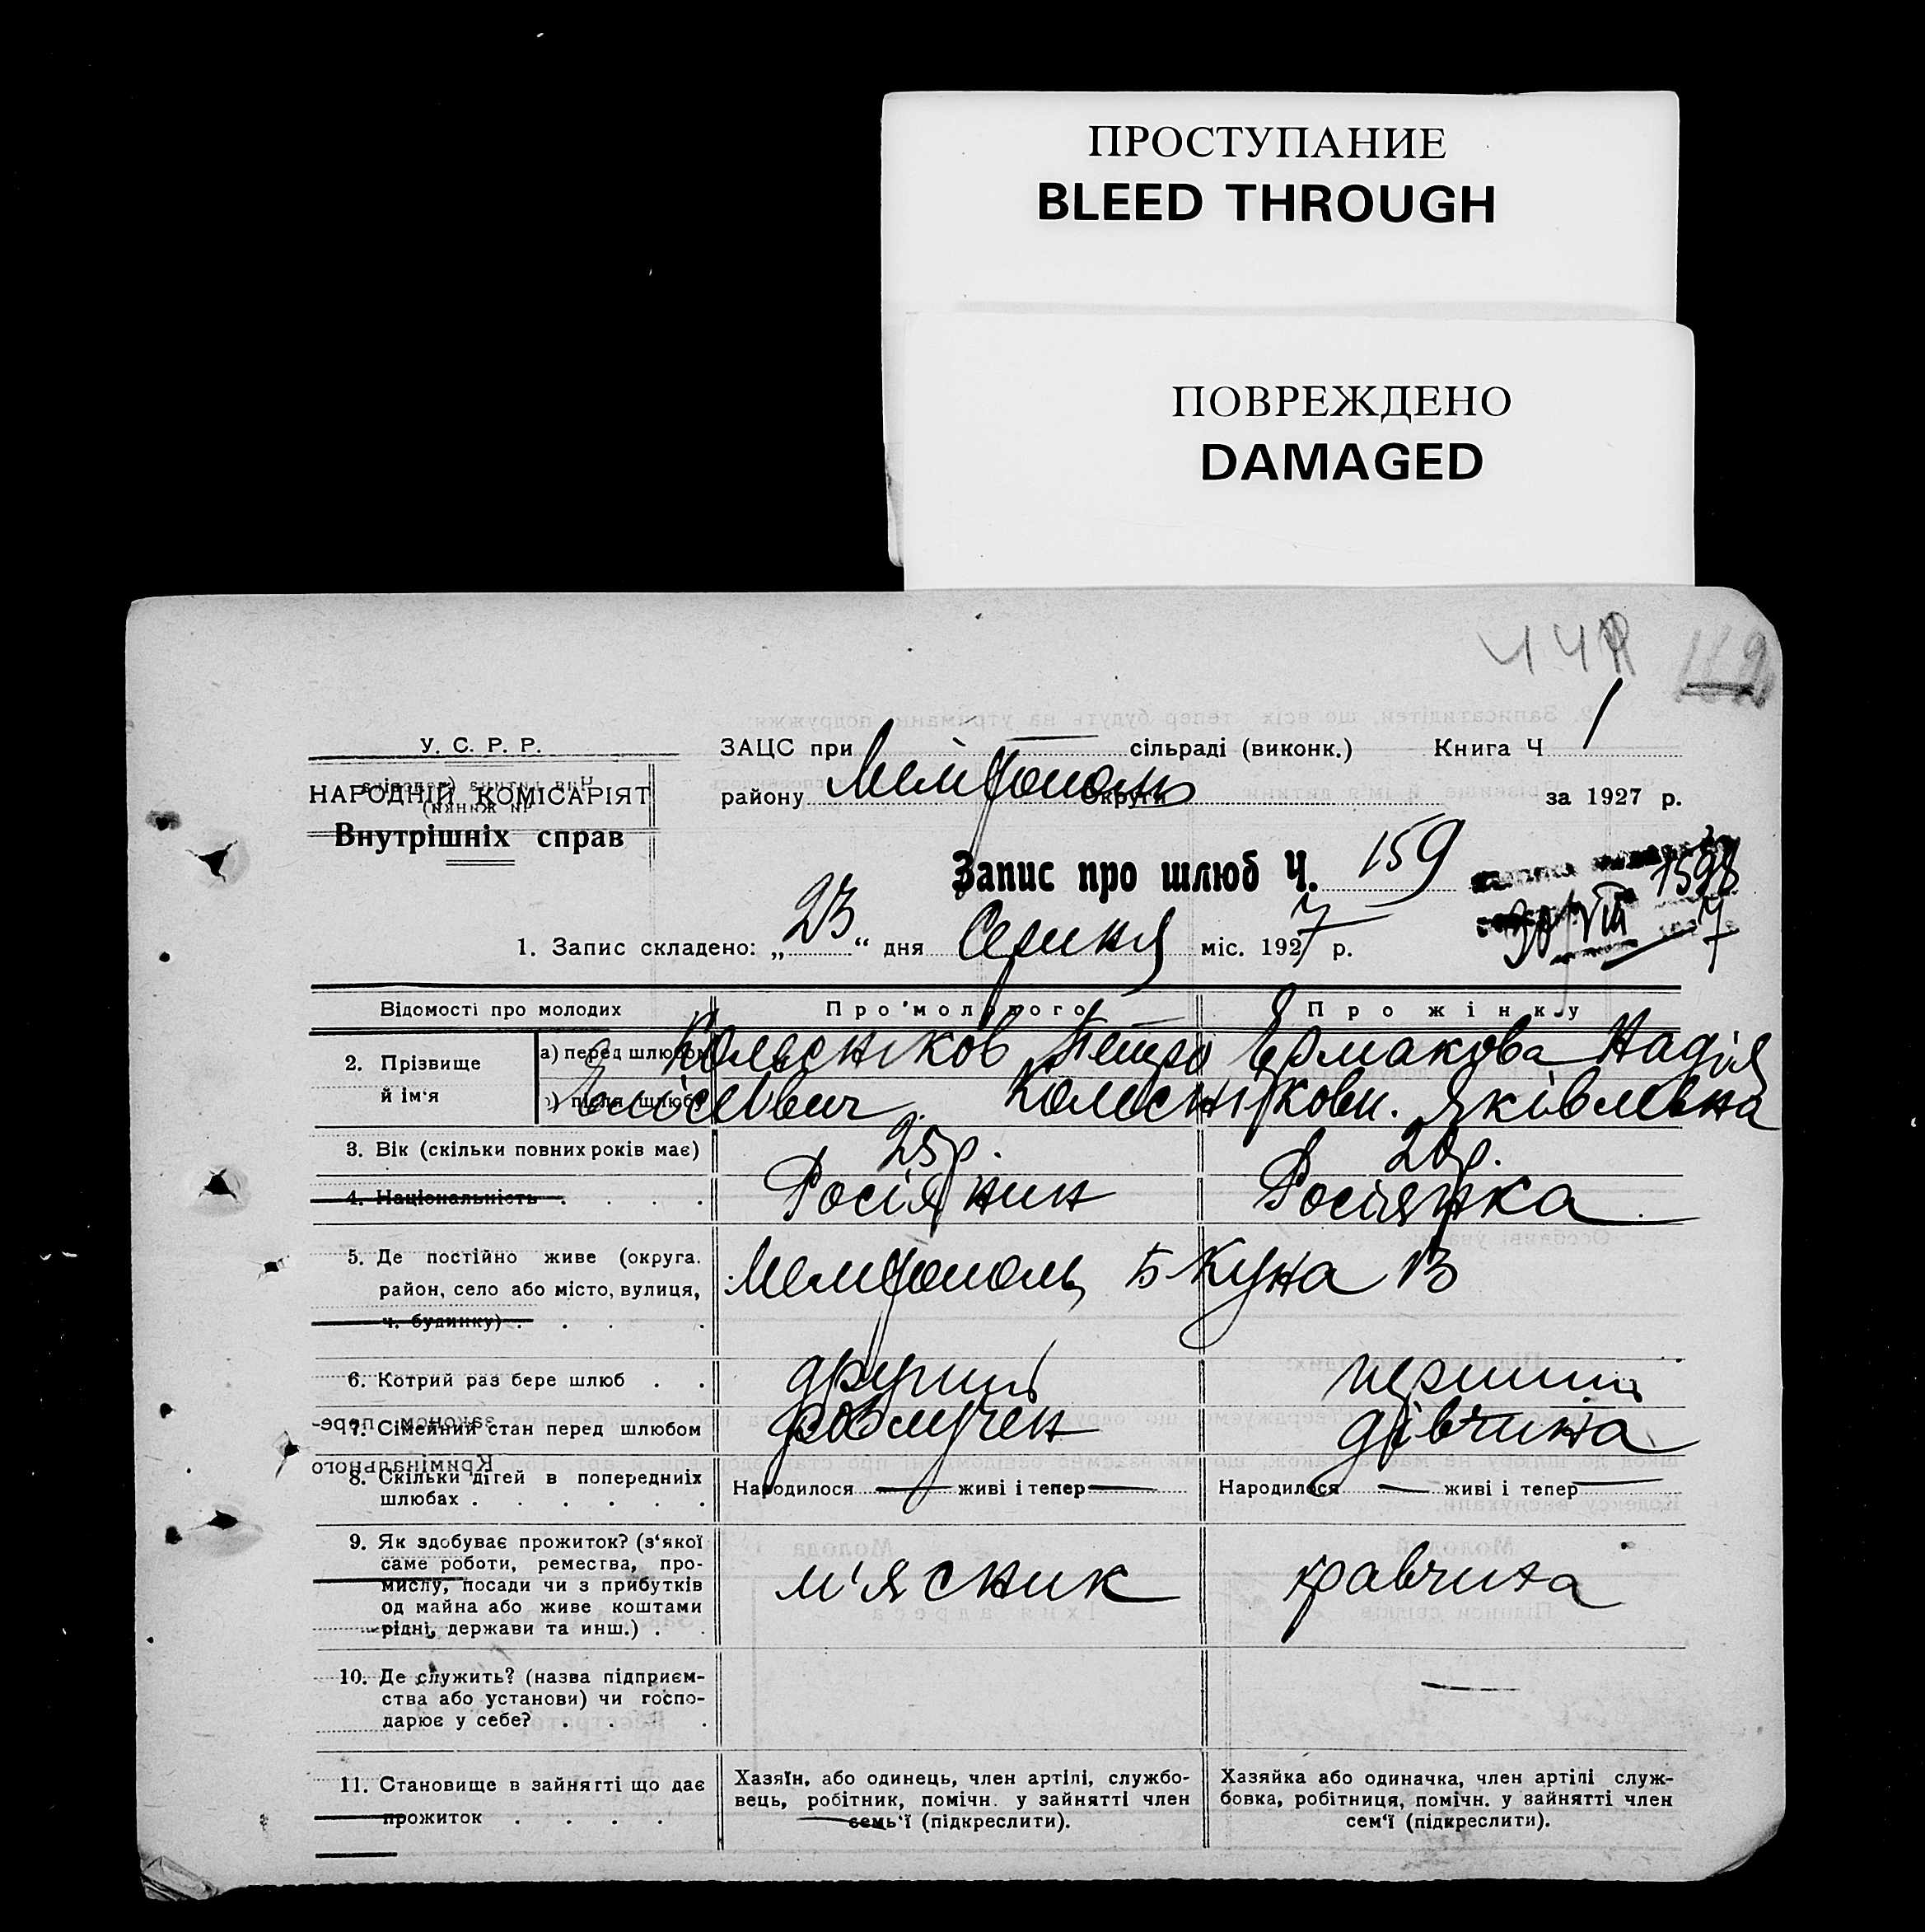 ПРОСТУПАНИЕ
BLEED THROUGH
ПОВРЕЖДЕНО
DAMAGED
У. С. Р. Р.
НАРОДНІЙ КОМІСАРІЯТ
Внутрішніх справ
ЗАЦС при — сільраді (виконк.) Книга Ч 1
району Мелітополь Округи за 1927 р.
Запис про шлюб Ч. 159
1. Запис складено: „23“ дня Серпня міс. 1927 р.
Відомості про молодих Про молодого Про жінку
2. Прізвище й ім‘я
а) перед шлюбом Колєсніков Петро Єрмакова Надія
б) після шлюбу Єлісєйвич Колєснікови. Яківлевна
3. Вік (скільки повних років має) 25р. 20р.
4. Національність Росіянин Росіянка
5. Де постійно живе (округа.
район, село або місто, вулиця,
ч. будинку) Мелітополь Б Куна 13
6. Котрий раз бере шлюб другий перший
7. Сімейний стан перед шлюбом розлучен дівчина
8. Скільки дітей в попередніх
шлюбах Народилося — живі і тепер — Народилося — живі і тепер —
9. Як здобуває прожиток? (з‘якої
саме роботи, ремества, про-
мислу, посади чи з прибутків
од майна або живе коштами
рідні, держави та инш.) м‘ясник кравчиха
10. Де служить? (назва підприєм-
ства або установи) чи госпо-
дарює у себе? —
11. Становище в зайнятті що дає
прожиток
Хазяїн, або одинець, член артілі, службо-
вець, робітник, помічн. у зайнятті член
семь‘ї (підкреслити).
Хазяйка або одиначка, член артілі служ-
бовка, робітниця, помічн. у зайнятті член
сем‘ї (підкреслити).